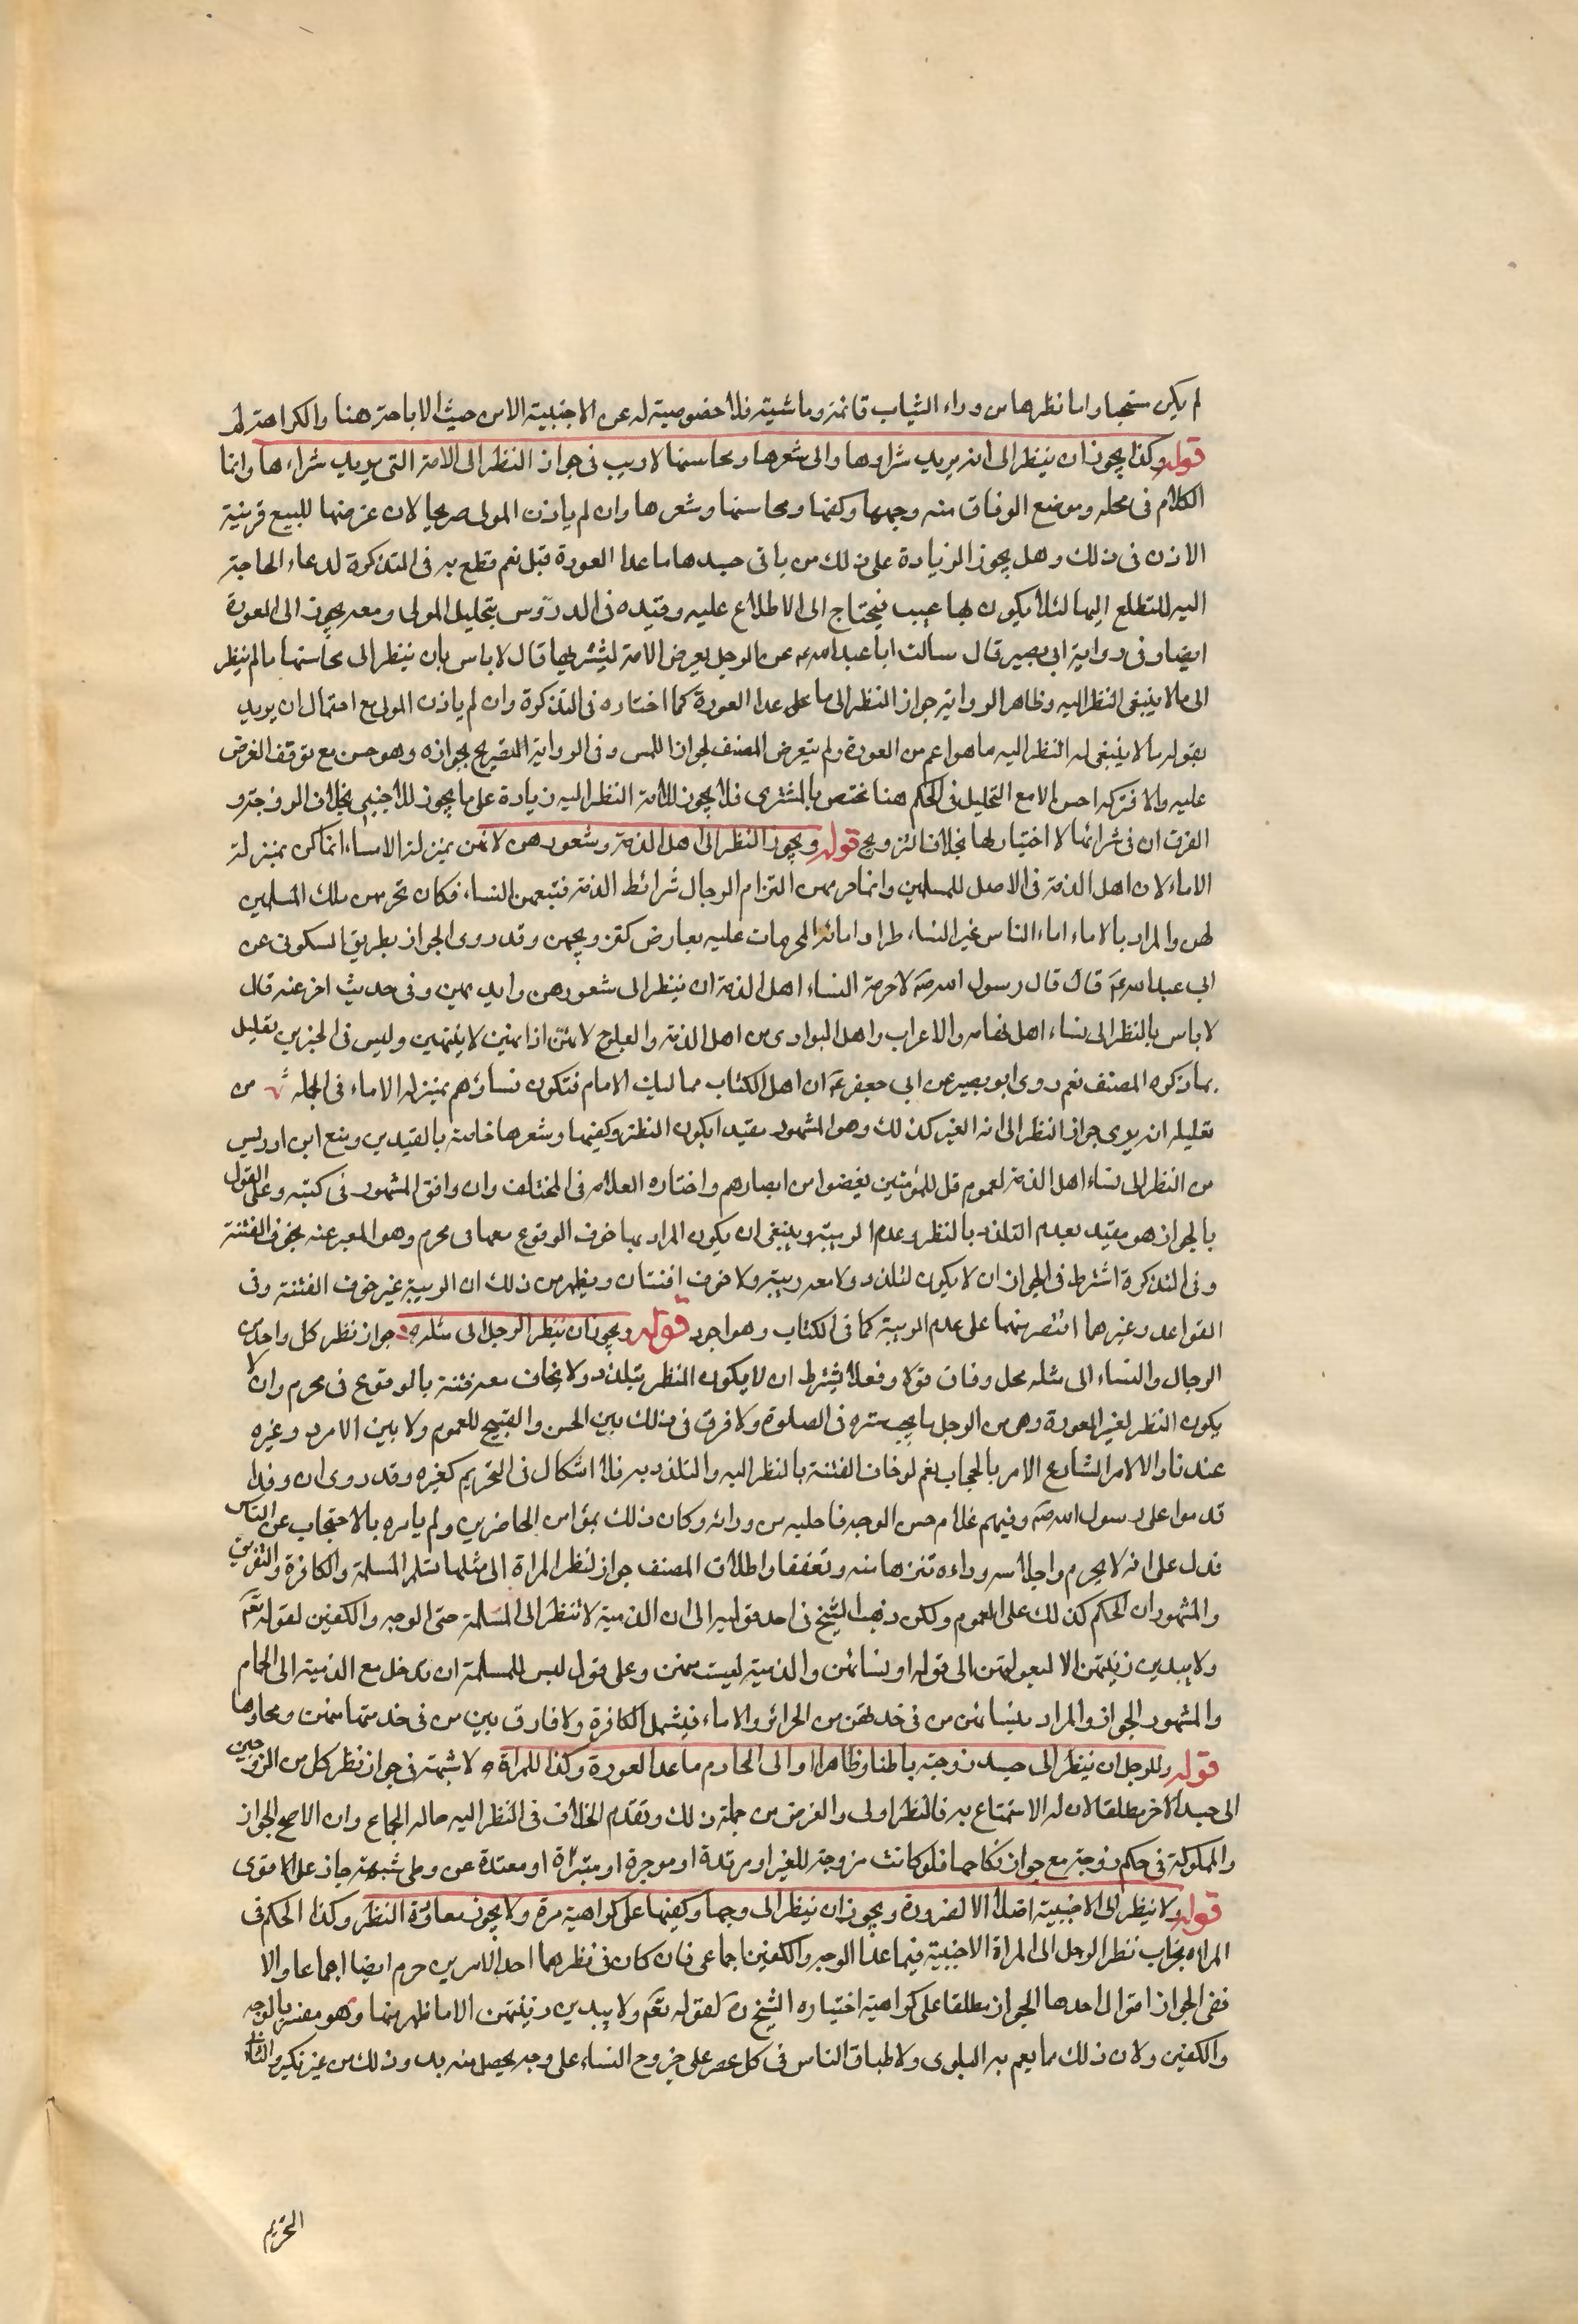 لم يكن مستحبا واما نظرها من وراء الثياب قائمة وماشية فلا خصوصية له عن الاجنبية الا من حيث الاباحة هنا والكراهة ثم
قوله وكذا يجوز ان ينظر الى امة يريد شراءها والى شعرها ومحاسنها لا ريب فى جواز النظر الى الامة التى يريد شراءها وانما
الكلام فى محله وموضع الوفاق منه وجهها وكفيها ومحاسنها وشعرها وان لم ياذن المولى صريحا لان عرضها للبيع قرينة
الاذن فى ذلك وهل يجوز الزيادة على ذلك من باقى جسدها ما عدا العورة قيل نعم قطع به فى التذكرة لدعاء الحاجة
اليه للتطلع اليها لئلا يكون بها عيب فيحتاج الى الاطلاع عليه وقيده فى الدروس بتحليل المولى ومعه يجوز الى العورة
ايضا وفى رواية ابى بصير قال سالت ابا عبد الله ع عن الرجل يعرض الامة ليشتريها قال لا باس بان ينظر الى محاسنها ما لم ينظر
الى ما لا ينبغى النظر اليه وظاهر الرواية جواز النظر الى ما عدا العورة كما اختاره فى التذكرة وان لم ياذن المولى مع احتمال ان يريد
بقوله ما لا ينبغى له النظر اليه ما هو اعم من العورة ولم يتعرض المصنف لجواز اللمس وفى الرواية التصريح بجوازه وهو حسن مع توقف الغرض
عليه والا فتركه احسن الا مع التحليل فى الحكم هنا مختص بالمشترى فلا يجوز للامة النظر اليه زيادة على ما يجوز للاجنبى بخلاف الزوجة و
الفرق ان فى شرائها لا اختيار لها بخلاف التزويج قوله ويجوز النظر الى اهل الذمة وشعورهن لانهن بمنزلة الاماء انما كن بمنزلة
الاماء لان اهل الذمة فى الاصل للمسلمين وانما حرمهن التزام الرجال شرائط الذمة فتبعهن النساء فكان تحريمهن ملك المسلمين
لهن والمراد بالاماء اماء الناس غير النساء طرا واماته المحرمات عليه بعارض كتزويجهن وقد روى الجواز بطريق السكونى عن
ابى عبد الله ع قال قال رسول الله ص لا حرمة لنساء اهل الذمة ان ينظر الى شعورهن وايديهن وفى حديث اخر عنه قال
لا باس بالنظر الى نساء اهل تهامه والاعراب واهل البوادى من اهل الذمة والعلوج لانهن اذا نهين لا ينتهين وليس فى الخبرين تعليل
بما ذكره المصنف نعم روى ابو بصير عن ابى جعفر ع ان اهل الكتاب مماليك الامام فتكون نساؤهم بمنزلة الاماء فى الجملة من
تعليله انه يرى جواز النظر الى امة الغير كذلك وهو المشهور مقيدا بكون النظر وكفيها وشعرها خاصة بالقيدين ومنع ابن ادريس
من النظر الى نساء اهل الذمة لعموم قل للمؤمنين يغضوا من ابصارهم واختاره العلامه فى المختلف وان وافق المشهور فى كتبه وعلى القول
بالجواز هو مقيد بعدم التلذذ بالنظر وعدم الريبة وينبغى ان يكون المراد بها خوف الوقوع معها فى محرم وهو المعبر عنه بخوف الفتنة
وفى التذكرة اشترط فى الجواز ان لا يكون لتلذذ ولا معه ريبة ولا خوف افتتان ويظهر من ذلك ان الريبة غير خوف الفتنة وفى
القواعد وغيرها اقتصر منهما على عدم الريبة كما فى الكتاب وهو اجود قوله ويجوز ان ينظر الرجل الى مثله جواز نظر كل واحد من
الرجال والنساء الى مثله محل وفاق قولا وفعلا يشترط ان لا يكون النظر بتلذذ ولا يخاف معه فتنة بالوقوع فى محرم وان لا
يكون النظر لغير العورة وهى من الرجل ما يجب ستره فى الصلوة ولا فرق فى ذلك بين الحسن والقبيح للعموم ولا بين الامرد وغيره
عندنا والا لامر الشارع الامر بالحجاب نعم لو خاف الفتنة بالنظر اليه والتلذذ به فلا اشكال فى التحريم كغيره وقد روى ان وفدا
قدموا على رسول الله ص وفيهم غلام حسن الوجه فاجلسه من ورائه وكان ذلك بمراى من الحاضرين ولم يامره بالاحتجاب عن الناس
فدل على انه لا يحرم واجلاسه وراءه تنزها منه وتعففا واطلاق المصنف جواز نظر المراة الى مثلها يشمل المسلمة والكافرة والتفريق
والمشهور ان الحكم كذلك على العموم ولكن ذهب الشيخ فى احد قوليه الى ان الذمية لا تنظر الى المسلمة حتى الوجه والكفين لقوله تعالى
ولا يبدين زينتهن الا لبعولتهن الى قوله او نسائهن والذمية ليست منهن وعلى قوله ليس للمسلمة ان تدخل مع الذمية الى الحمام
والمشهور الجواز والمراد بنسائهن من فى خدمتهن من الحرائر والاماء فيشمل الكافرة ولا فارق بين من فى خدمتها منهن وغيرها
قوله وللرجل ان ينظر الى جسد زوجته باطنا وظاهرا والى المحارم ما عدا العورة وكذا للمراة لا شبهة فى جواز نظر كل من الزوجين
الى جسد الاخر مطلقا لان له الاستمتاع به فالنظر اولى والفرض من جملة ذلك وتقدم الخلاف فى النظر اليه حالة الجماع وان الاصح الجواز
والمملوكة فى حكم زوجته مع جواز نكاحها فلو كانت مزوجة للغير او مرتدة او موجرة او متبراة او معتدة عن وطى شبهة جاز على الاقوى
قوله ولا ينظر الى الاجنبية اصلا الا لضرورة ويجوز ان ينظر الى وجهها وكفيها على كراهية مرة ولا يجوز معاودة النظر وكذا الحكم فى
المراة تحريم نظر الرجل الى المراة الاجنبية فيما عدا الوجه والكفين اجماعى فان كان فى نظرهما احد الامرين حرم ايضا اجماعا والا
ففى الجواز اقوال احدها الجواز مطلقا على كراهية اختياره الشيخ ره لقوله تعالى ولا يبدين زينتهن الا ما ظهر منها وهو مفسر بالوجه
والكفين ولان ذلك مما يعم به البلوى ولاطباق الناس فى كل عصر على خروج النساء على وجه يحصل منه بدو ذلك من غير نكير والثانى
التحريم